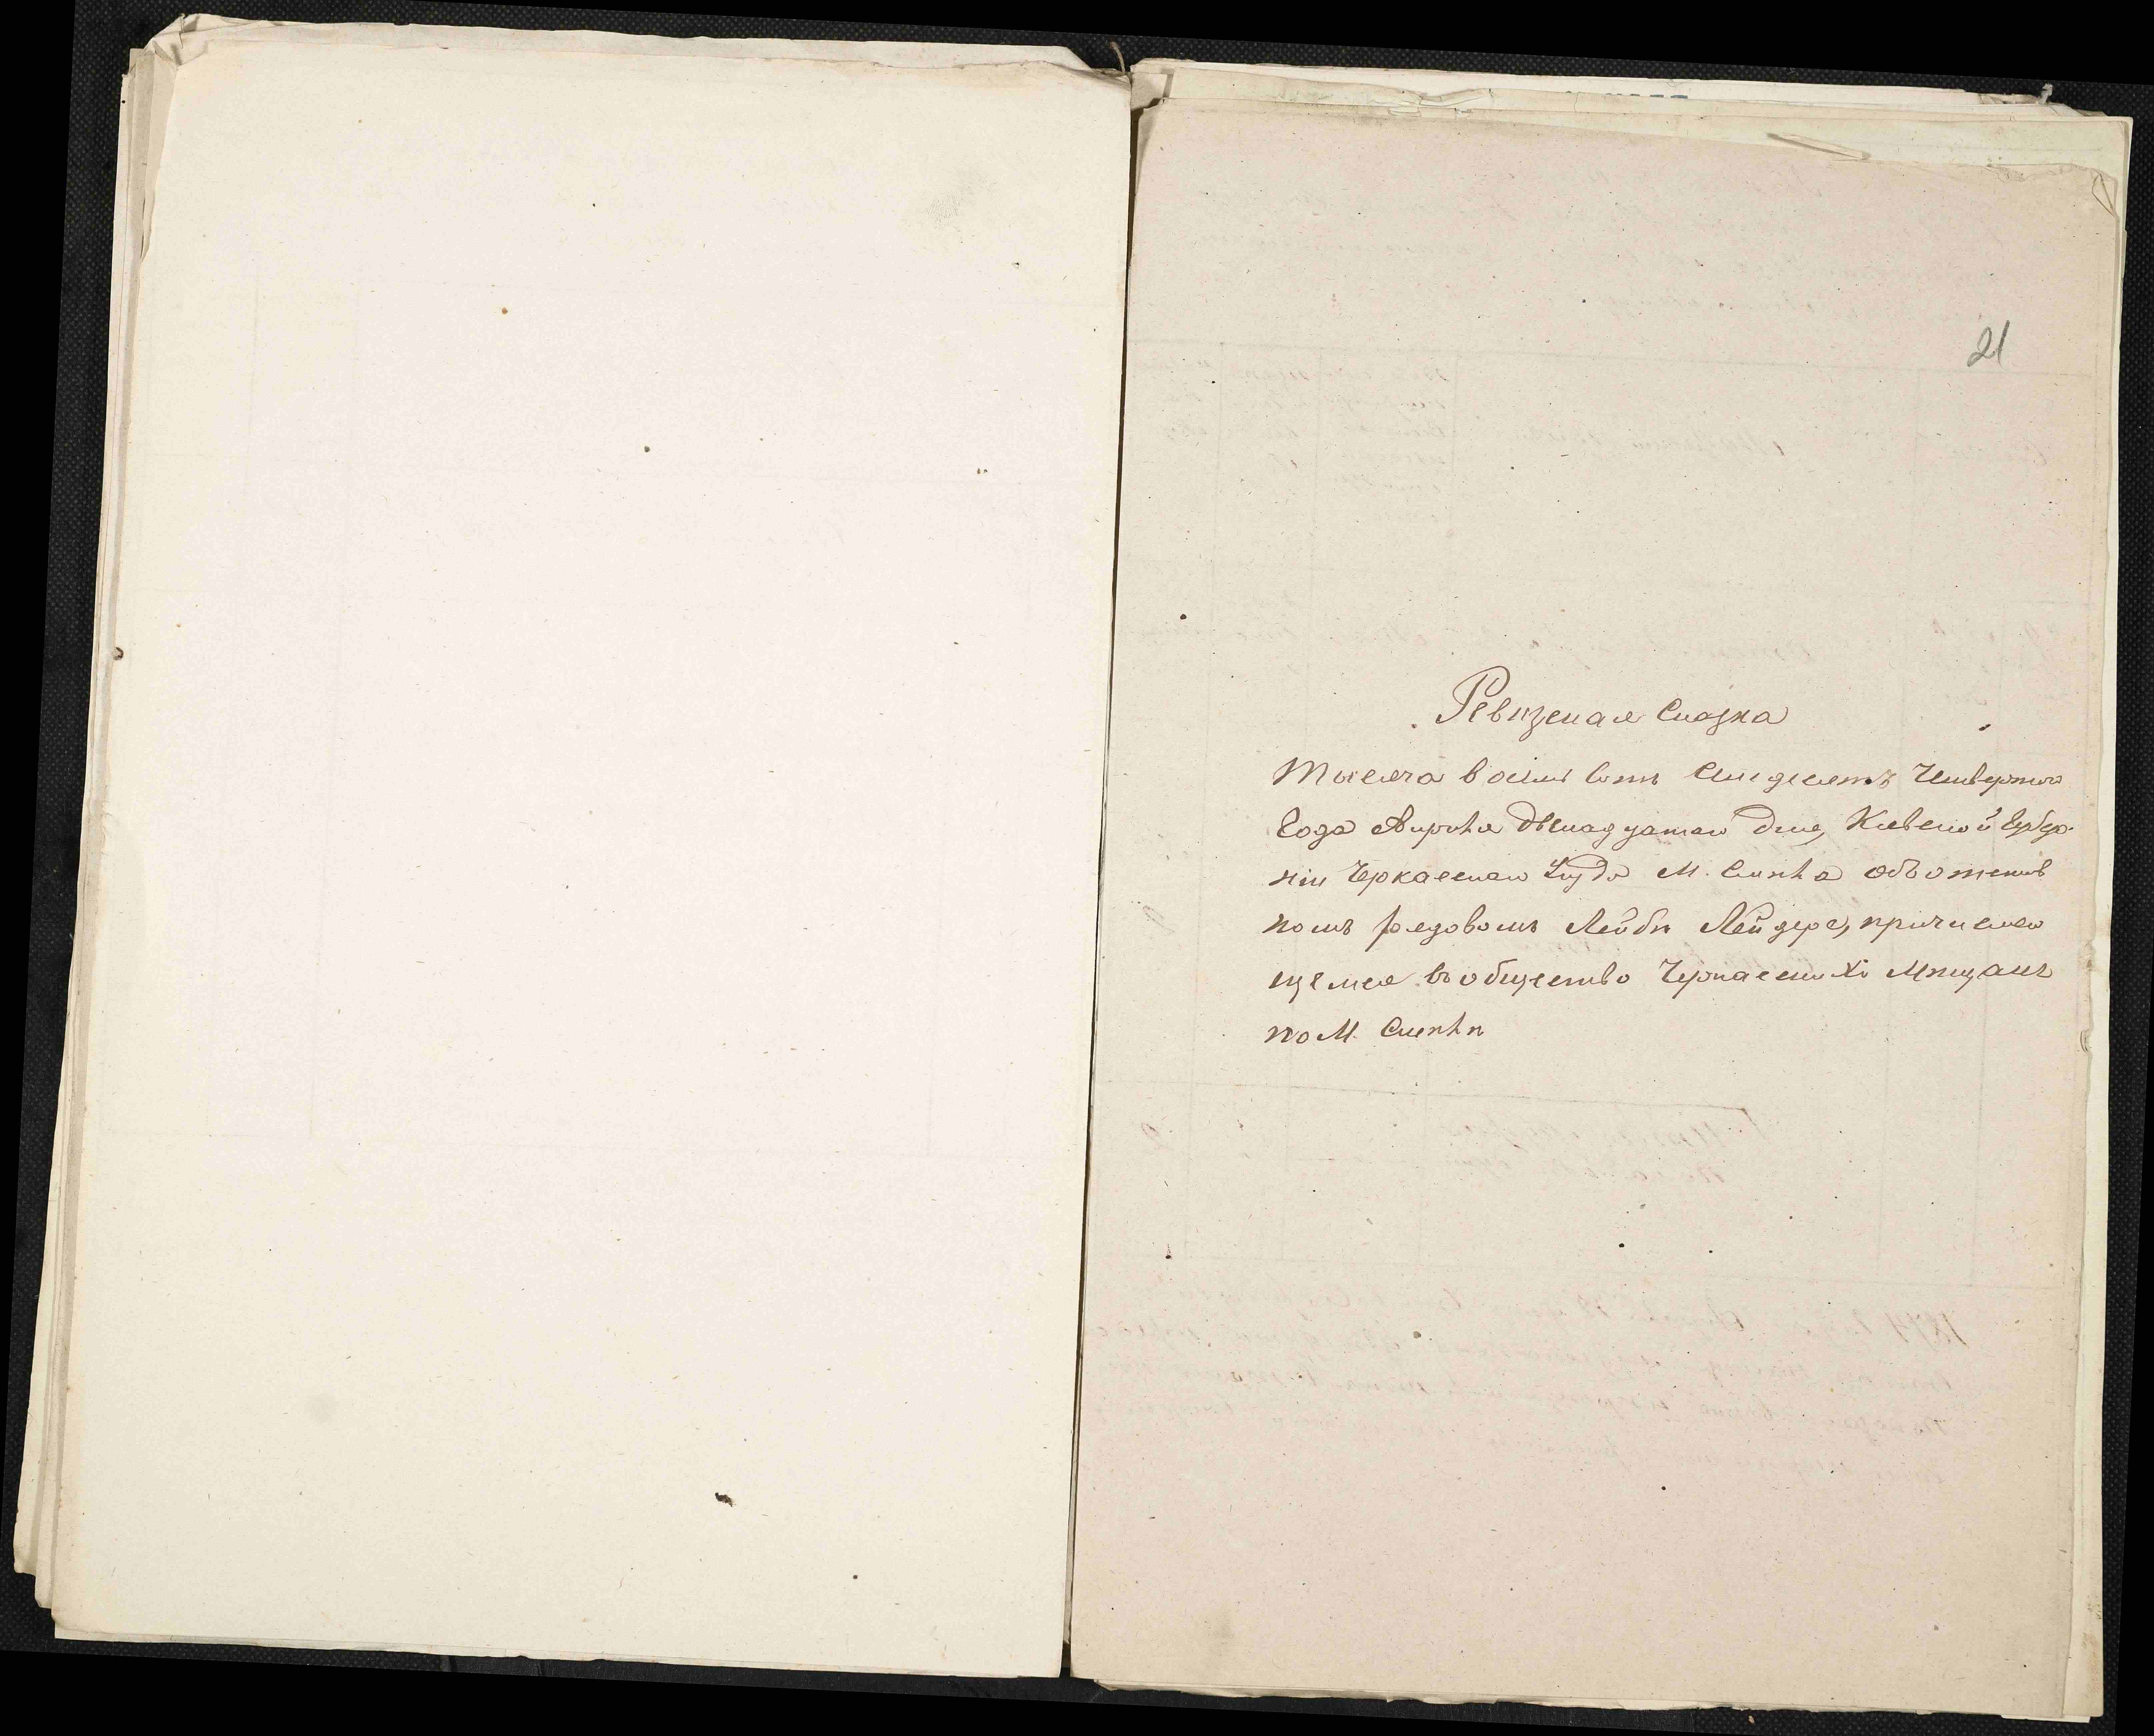 21
Ревизская Сказка
Тысяча восемь сотъ семдесятъ Четвертого
Года Апреля двенадцатого дня, Киевской Губер-
ніи Черкаскаго Уезда М. Смела объ отстав
номъ рядовомъ Лейбе Лейдере, причисляю
щемся въ общество Черкаскихъ Мещанъ
по М. Смеле